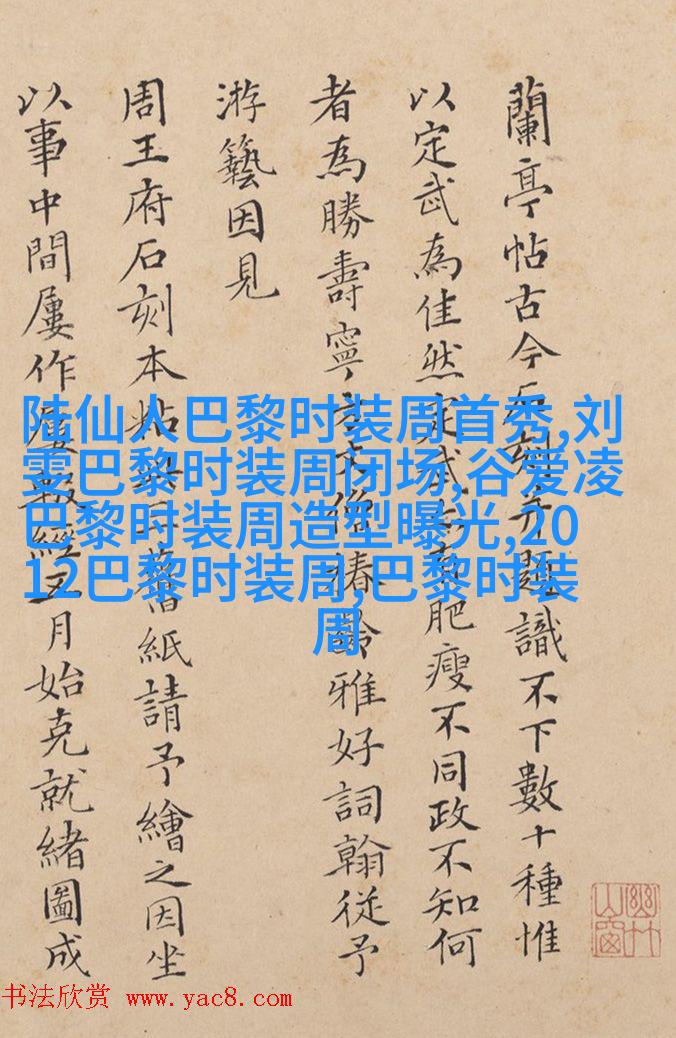 蘭亭帖古今石刻題識不下數十種惟
以定武為佳然定武肥瘦不同政不知何
者為勝壽寧僧椿齡雅好詞翰從予
游藝因見
周王府石刻本粘舊紙請予繪之因坐
以事中間屢作屢輟經五月始克就緒圖成
幽竹山窗
陆仙人巴黎时装周首秀,刘
雯巴黎时装周闭场,谷爱凌
巴黎时装周造型曝光,20
12巴黎时装周,巴黎时装
周
书法欣赏 www.yac8.com